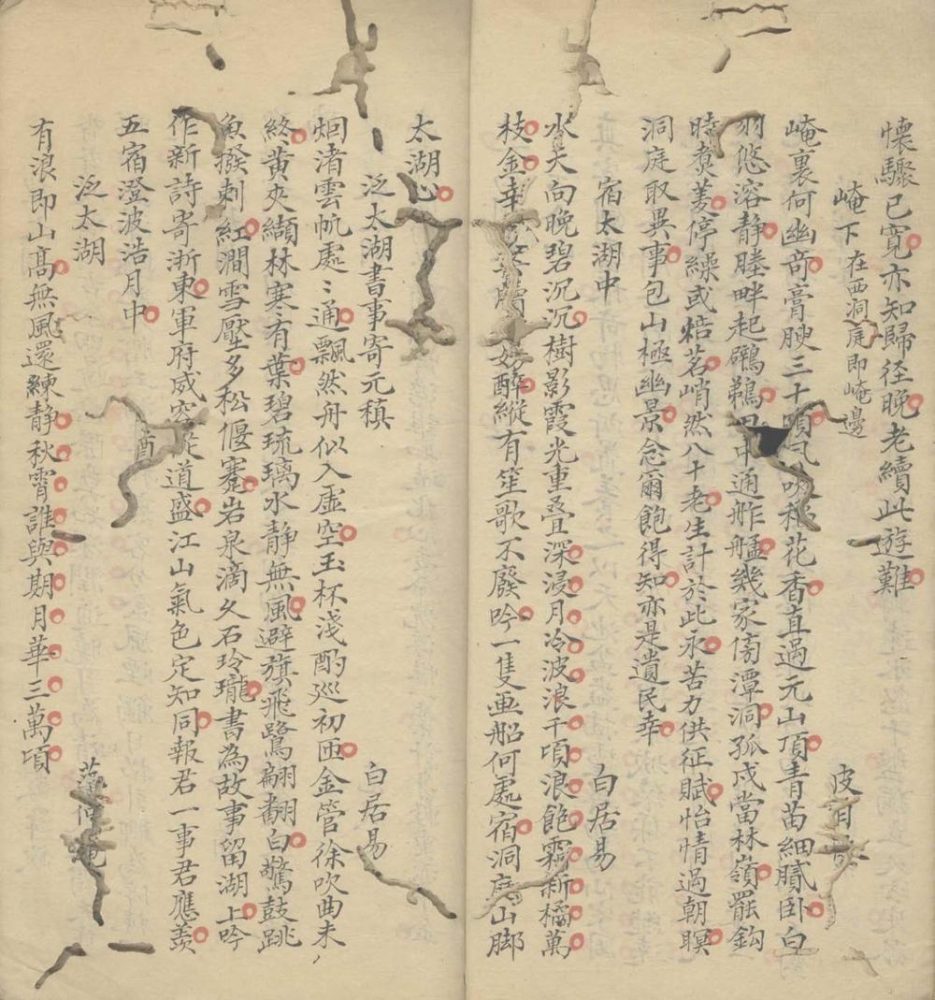 懷驟已寛亦知歸徑晚老續此遊難
崦下 在西洞庭即崦邊 皮日
崦裏何幽奇膏腴三十頃風吹稻花香直過元山頂青苗細膩卧白
羽悠溶静塍畔起鸊鷉田中通舴艋幾家傍潭洞孤戍當林嶺罷釣
時煑菱停繰或焙茗峭然八十老生計於此永苦力供征賦怡情過朝暝
洞庭取異事包山極幽景念爾飽得知亦是遺民幸
宿太湖中 白居易
水天向晚碧沉沉樹影霞光重叠深浸月冷波浪千頃浪飽霜新橘萬
枝金幸 案牘 好醉縱有笙歌不廢吟一隻画船何處宿洞庭山脚
太湖心
泛太湖書事寄元稹 白居易
烟渚雲帆處〻通飄然舟似入虚空玉杯淺酌巡初匝金管徐吹曲未
終黄夾纈林寒有葉碧琉璃水静無風避旗飛鷺翩翻白驚鼓跳
魚撥刺紅澗雪壓多松偃蹇岩泉滴久石玲瓏書為故事留湖上吟
作新詩寄浙東軍府威容從道盛江山氣色定知同報君一事君應羨
五宿澄波浩月中
泛太湖
有浪即山髙無風還練静秋霄誰與期月華三萬頃